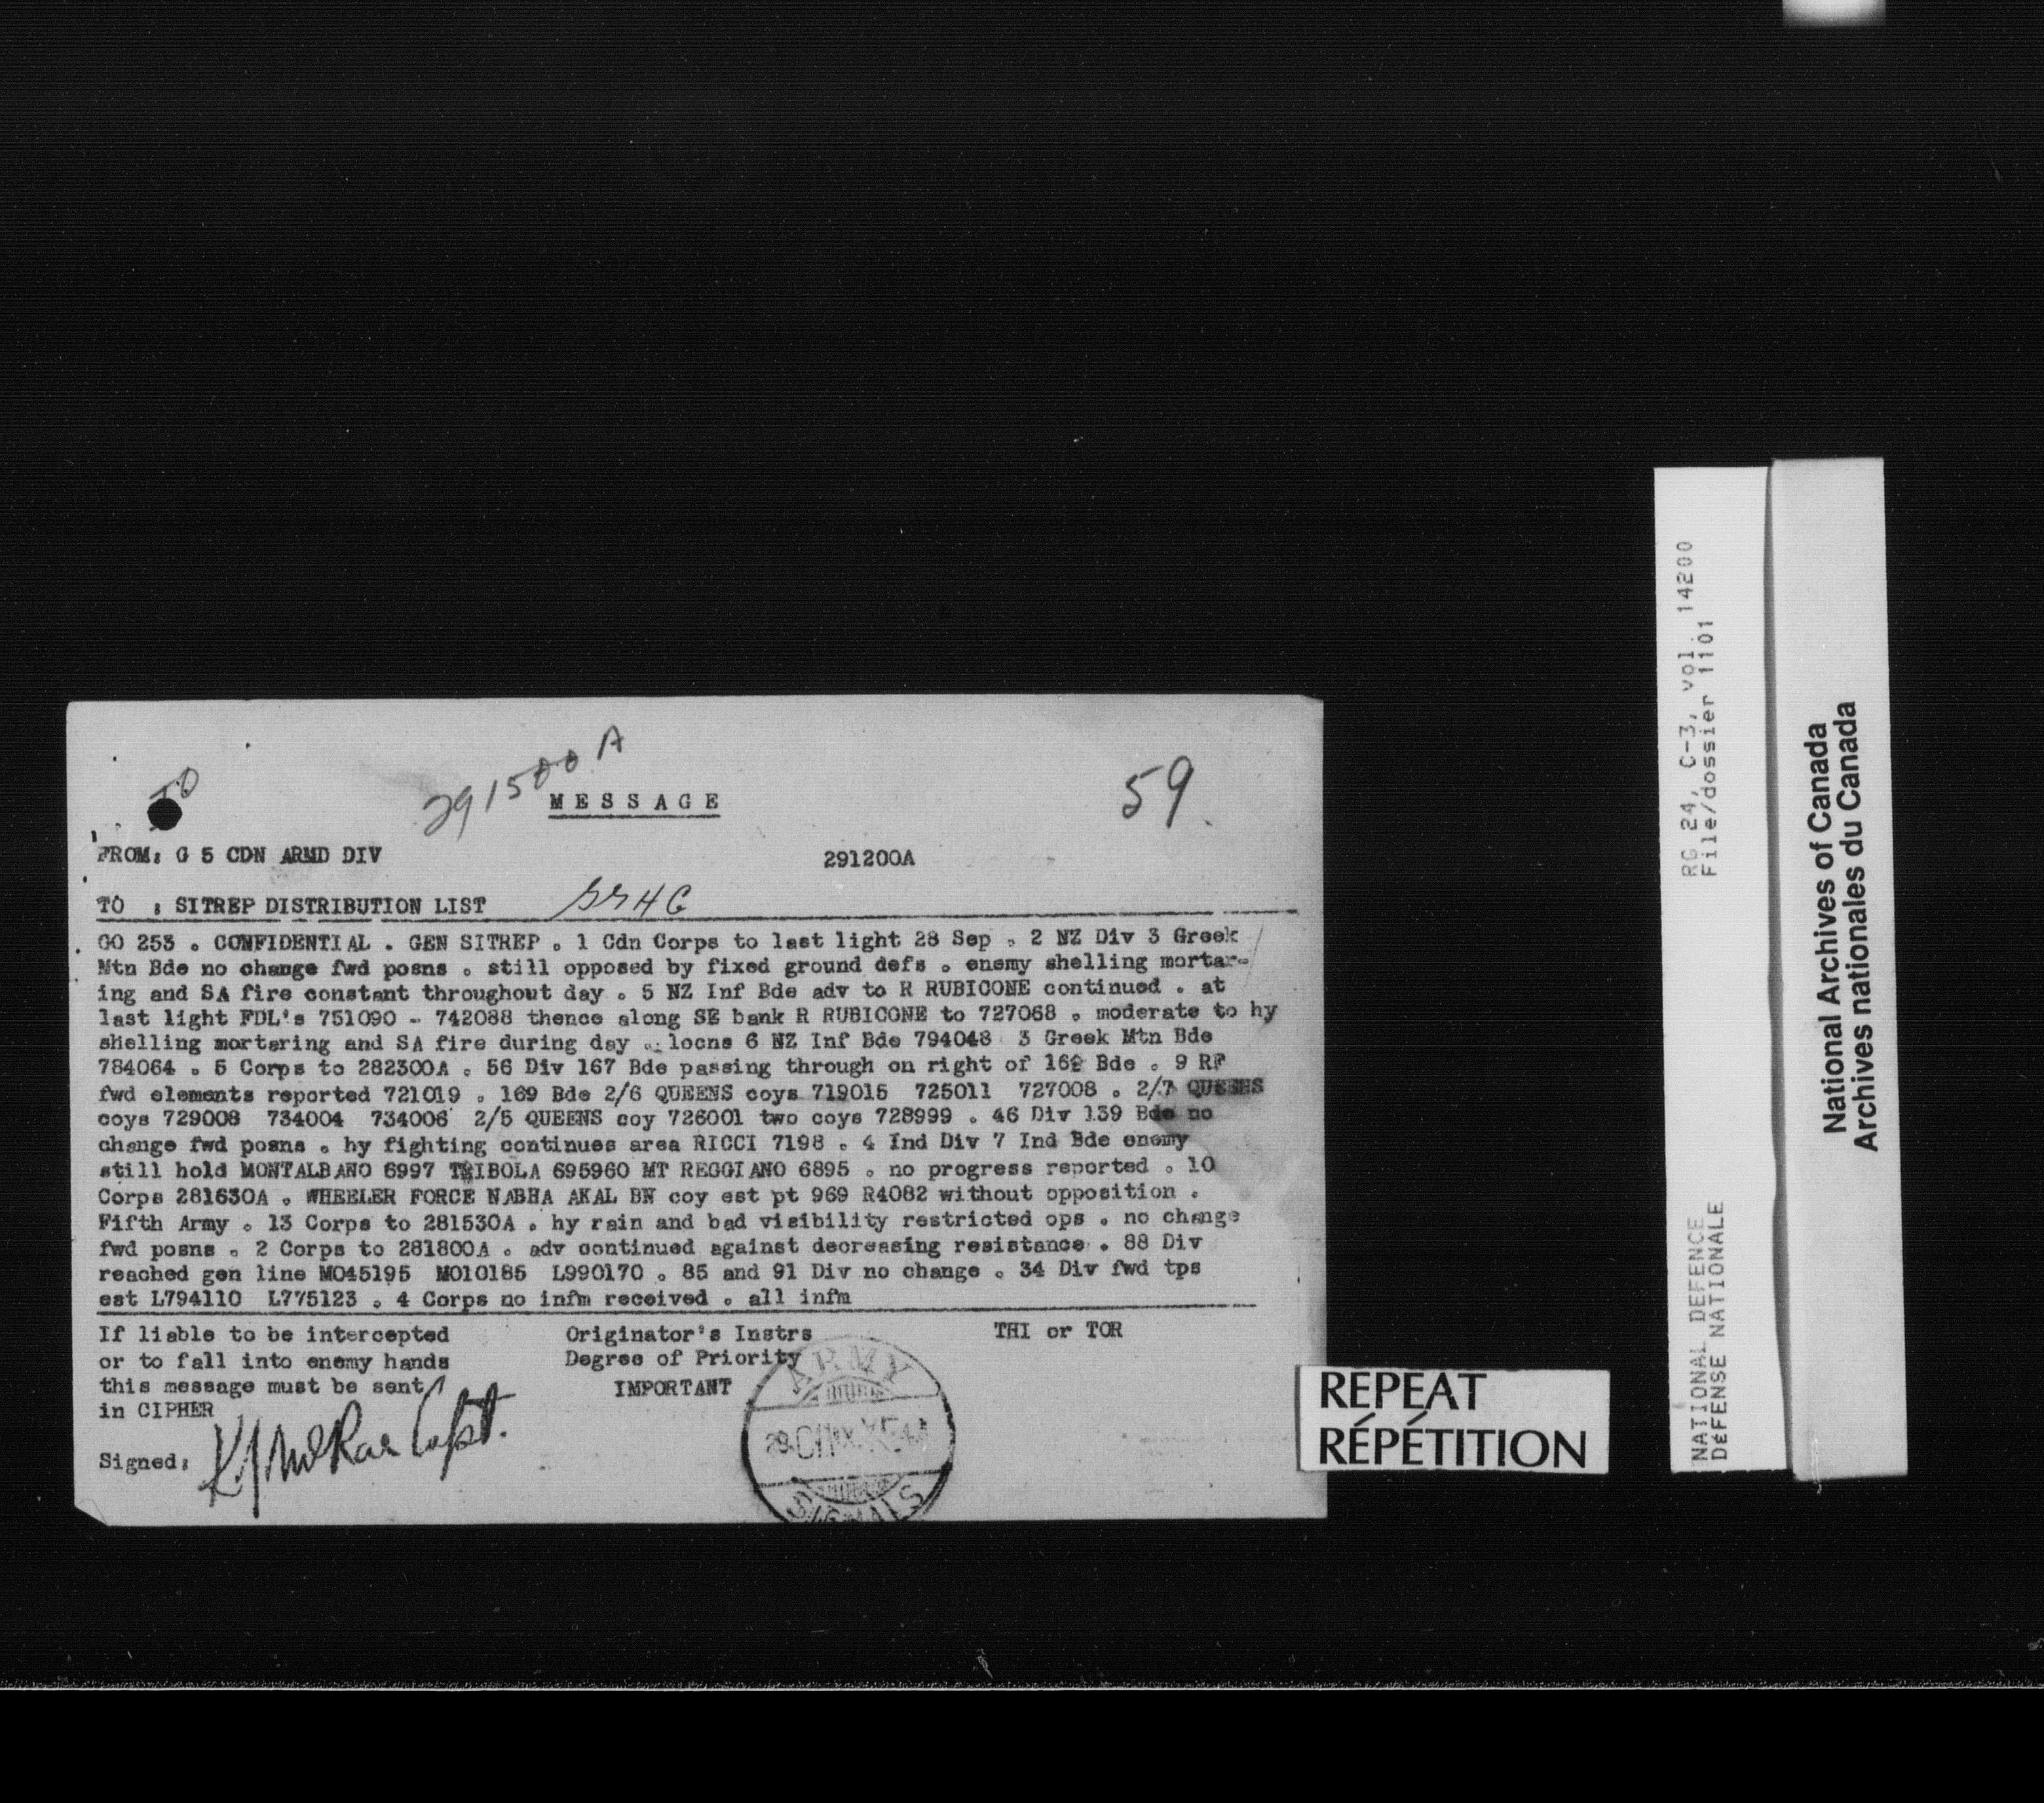 291500A
59.
MESSAGE
FROM: G 5 CDN ARMD DIV 291200A
TO : SITREP DISTRIBUTION LIST
GO 253 . CONFIDENTIAL . GEN SITREP . 1 Cdn Corps to last light 28 Sep . 2 NZ Div 3 Greek
Mtn Bde no change fwd posns . still opposed by fixed ground defs . enemy shelling mortar-
ing and SA fire constant throughout day . 5 NZ Inf Bde adv to R RUBICONE continued . at
last light FDL's 751090 - 742088 thence along SE bank R RUBICONE to 727068 . moderate to hy
shelling mortering and SA fire during day . locns 6 NZ Inf Bde 794048 3 Greek Mtn Bde
784064 . 5 Corps to 282300A . 56 Div 167 Bde passing through on right of 169 Bde . 9 RF
fwd elements reported 721019 . 169 Bde 2/6 QUEENS coys 719015 725011 727008 . 2/7 QUEENS
coys 729008 734004 734006 2/5 QUEENS coy 726001 two coys 728999 . 46 Div 139 Bde no
change fwd posns . hy fighting continues area RICCI 7198 . 4 Ind Div 7 Ind Bde enemy
still hold MONTALBANO 6997 TRIBOLA 695960 MT REGGIANO 6895 . no progress reported . 10
Corps 281630A . WHEELER FORCE NABHA AKAL BN coy est pt 969 R4082 without opposition .
Fifth Army . 13 Corps to 281530A . hy rain and bad visibility restricted ops . no change
fwd posns . 2 Corps to 281800A . adv continued against decreasing resistance . 88 Div
reached gen line M045195 M010185 L990170 . 85 and 91 Div no change . 34 Div fwd tps
est L794110 L775123 . 4 Corps no infm received . all infm
If liable to be intercepted Originator's Instrs THI or TOR
or to fall into enemy hands Degree of Priority
this message must be sent IMPORTANT
in CIPHER
Signed: Capt.
ARMY
SIGNALS
REPEAT
RÉPÉTITION
RG 24, C-3, vol. 14200
File/dossier 1101
NATIONAL DEFENCE
DÉFENSE NATIONALE
National Archives of Canada
Archives nationales du Canada